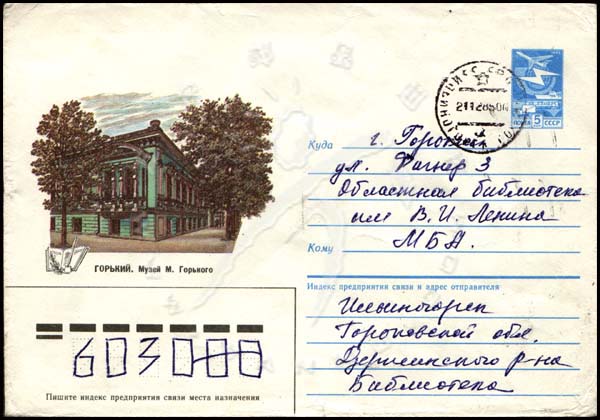 5
СССР
21 12 85
Куда
г. Горький
ул. Фигнер 3
Областная библиотека
им В. И. Ленина
Кому
МБА.
ГОРЬКИЙ. Музей М. Горького
Индекс предприятия связи и адрес отправителя
Ильиногорск
Горьковской обл.
Держинского р-на
Библиотека
603000
Пишите индекс предприятия связи места назначения